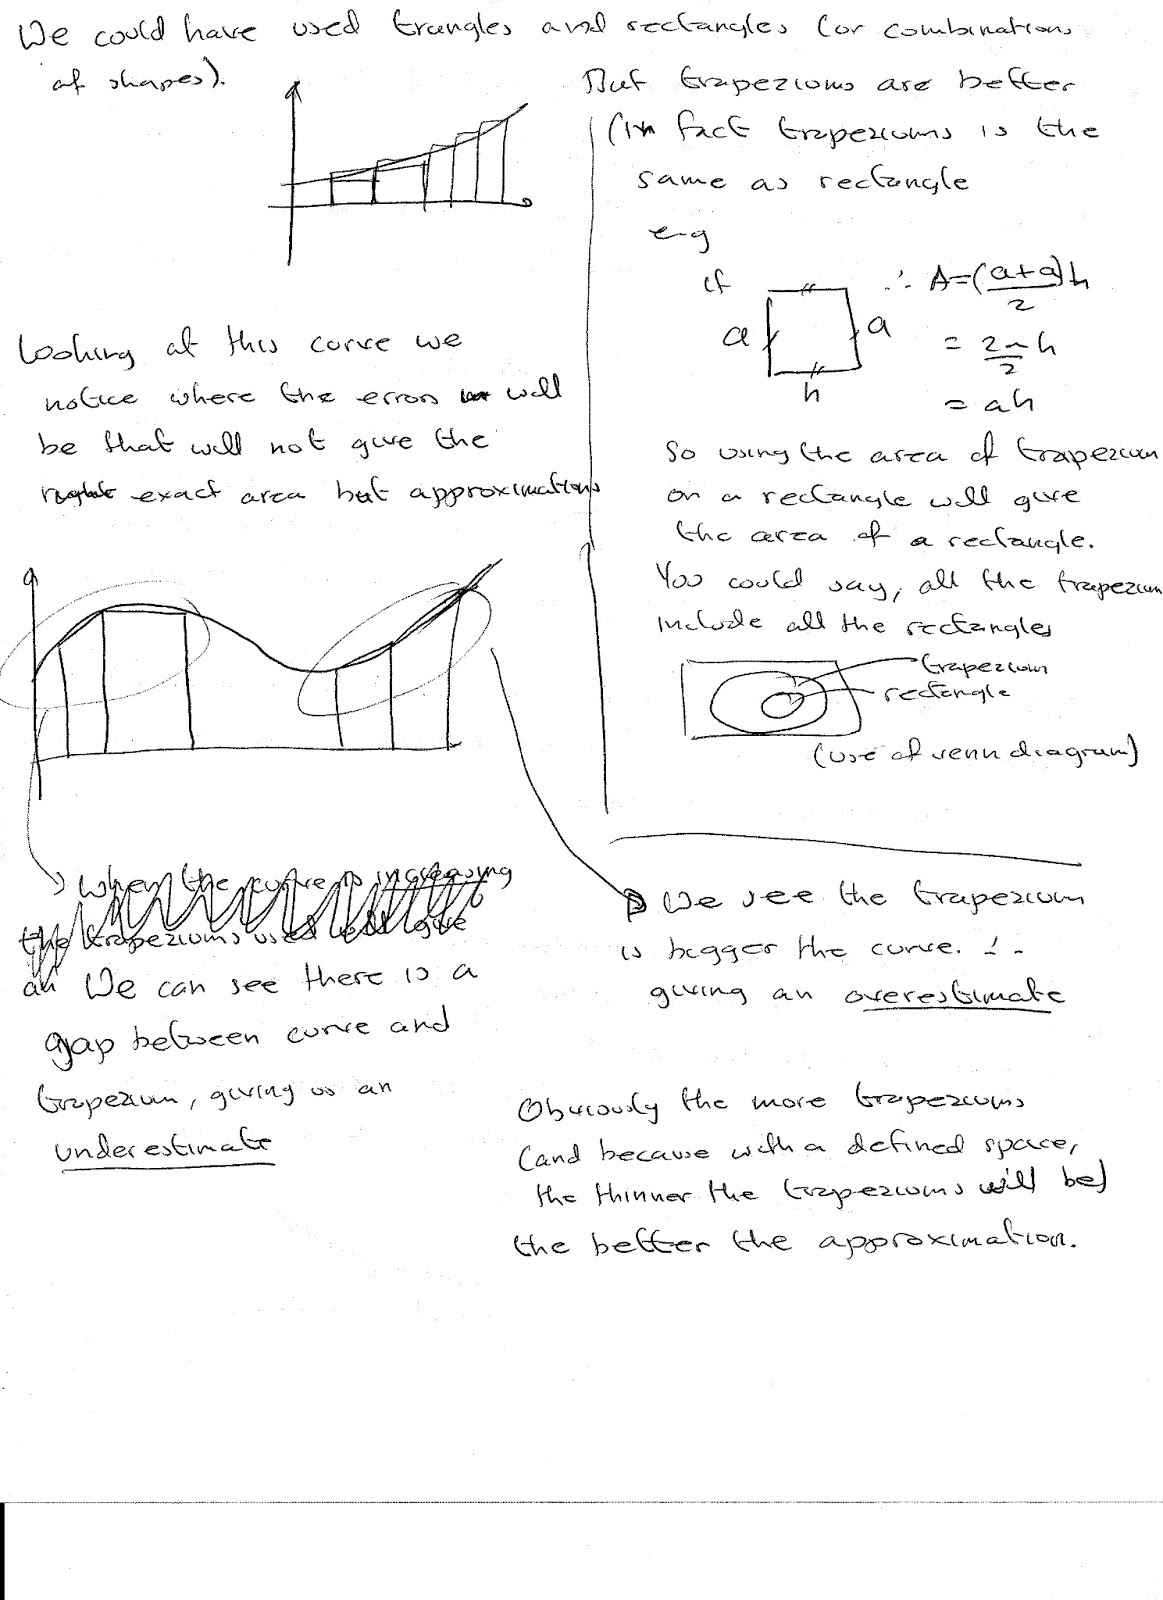 We could have used trangles and rectangles (or combinations
of shapes).
But trapeziums are better
(In fact trapeziums is the
same as rectangle
e-g
if
a
a
h
∴ A=(a+a)h
2
= 2ah
2
= ah
So using the area of trapezium
on a rectangle will give
the area of a rectangle.
You could say, all the trapezium
include all the rectangles
trapezium
rectangle
(use of venn diagram)
Looking at this curve we
notice where the errors will
be that will not give the
exact area but approximations
When the curve is increasing
the trapeziums used will give
an We can see there is a
gap between curve and
trapezium, giving us an
underestimate
We see the trapezium
is bigger the curve. ∴
giving an overestimate
Obviously the more trapeziums
(and because with a defined space,
the thinner the trapeziums will be)
the better the approximation.